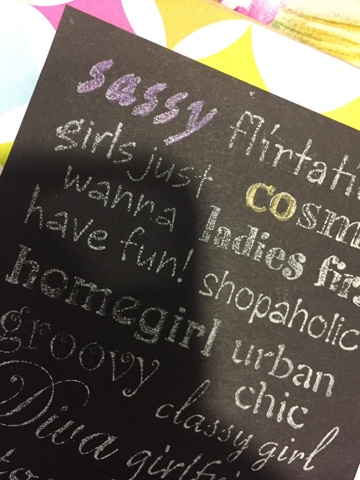 sassy
flirtati
girls just
wanna
have fun!
cosm
ladies fir
shopaholic
homegirl
urban
chic
groovy
classy girl
Diva
girlfri